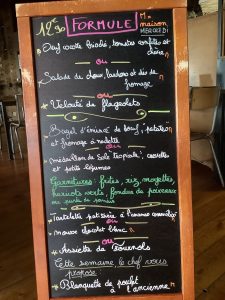 12€90 FORMULE maison
MERCREDI
Oeuf cocotte brioché, tomates confites et
ou
Salade de choux, lardons et dés de
fromage
ou
Velouté de flageolets
Bagel d'émincé de boeuf,
et fromage à raclette
ou
médaillon de sole tropicale, crevette
et petits légumes
Garnitures: frites, riz, mogettes,
haricots verts, fondue de poireaux
ou purée de
Tartelette patissière à l'ananas caramélisé
ou
mousse chocolat blanc
ou
Assiette de Fournols
Cette semaine le chef vous
propose:
Blanquette de poulet
à l'ancienne